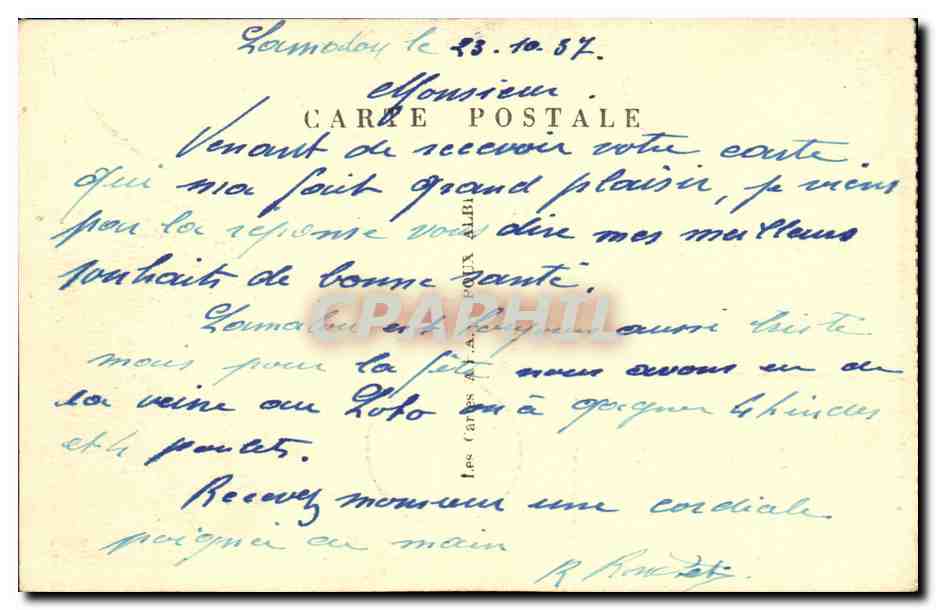 Lamalou le 23.10.37.
Monsieur.
CARTE POSTALE
Venant de recevoir votre carte.
qui ma fait grand plaisir, je viens
pour la reponse vous dire mes meilleurs
souhaits de bonne santé.
CPAPHIL
Lamalou est toujours aussi triste
mais pour la fête nous avons eu de
la veine au Loto on à gagner 4 hindes
et 4 poulets.
Recevez monsieur une cordiale
poignée de main
R
Les Cartes A.P.A. POUX ALBI